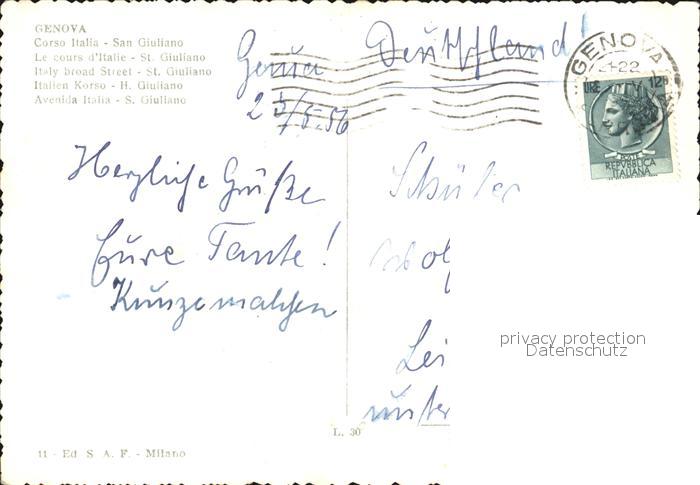 GENOVA
Corso Italia - San Giuliano
Le cours d'Italie - St. Giuliano
Italy broad Street - St. Giuliano
Italien Korso - H. Giuliano
Avenida Italia - S. Giuliano
Genua
Deutschland!
GENOVA
-22
LIRE 12
POSTE
REPVBBLICA
ITALIANA
Herzliche Grüße
Eure Tante!
Schüler
Lei
unter
privacy protection
Datenschutz
L. 30
11 - Ed S A. F. - Milano